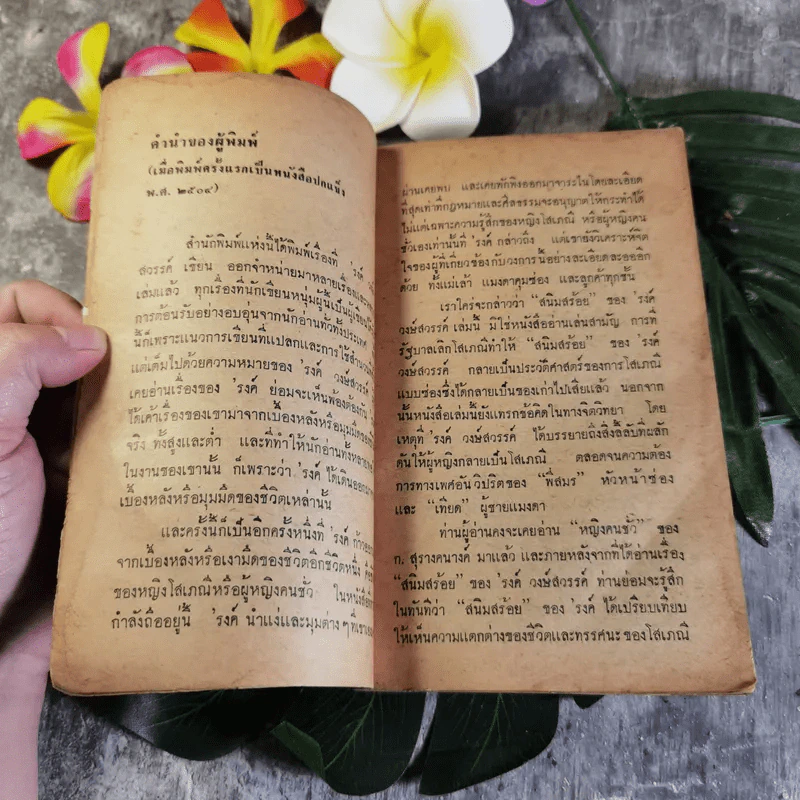 คำนำของผู้พิมพ์
(เมื่อพิมพ์ครั้งแรกเป็นหนังสือปกแข็ง
พ.ศ. ๒๕๐๔)
สำนักพิมพ์แห่งนี้ได้พิมพ์เรื่องที่ 'รงค์
สวรรค์ เขียน ออกจำหน่ายมาหลายเรื่อง
เล่มแล้ว ทุกเรื่องที่นักเขียนหนุ่มผู้นี้เป็นผู้เขียน
การต้อนรับอย่างอบอุ่นจากนักอ่านทั่วทั้งประเทศ
นี้ก็เพราะแนวการเขียนที่แปลกและการใช้สำนวน
แต่เต็มไปด้วยความหมายของ 'รงค์ วงษ์สวรรค์
เคยอ่านเรื่องของ 'รงค์ ย่อมจะเห็นพ้องต้องกัน
ได้เค้าเรื่องของเขามาจากเบื้องหลังหรือมุมมืดของ
จริง ทั้งสูงและต่ำ และที่ทำให้นักอ่านทั้งหลาย
ในงานของเขานั้น ก็เพราะว่า 'รงค์ ได้เดินออก
เบื้องหลังหรือมุมมืดของชีวิตเหล่านั้น
และครั้งนี้ก็เป็นอีกครั้งหนึ่งที่ 'รงค์ ก้าว
จากเบื้องหลังหรือเงามืดของชีวิตอีกชีวิตหนึ่ง คือ
ของหญิงโสเภณีหรือผู้หญิงคนชั่ว ในหนังสือ
กำลังถืออยู่นี้ 'รงค์ นำแง่และมุมต่าง ๆ ที่เขา
ผ่านเคยพบ และเคยพักพิงออกมาจาระไนโดยละเอียด
ที่สุดเท่าที่กฎหมายและศีลธรรมจะอนุญาตให้กระทำได้
ไม่แต่เฉพาะความรู้สึกของหญิงโสเภณี หรือผู้หญิงคน
ชั่วเองเท่านั้นที่ 'รงค์ กล่าวถึง แต่เขายังวิเคราะห์จิต
ใจของผู้ที่เกี่ยวข้องกับวงการนี้อย่างละเอียดละอออีก
ด้วย ทั้งแม่เล้า แมงดาคุมซ่อง และลูกค้าทุกชั้น
เราใคร่จะกล่าวว่า “สนิมสร้อย” ของ 'รงค์
วงษ์สวรรค์ เล่มนี้ มิใช่หนังสืออ่านเล่นสามัญ การที่
รัฐบาลเลิกโสเภณีทำให้ “สนิมสร้อย” ของ 'รงค์
วงษ์สวรรค์ กลายเป็นประวัติศาสตร์ของการโสเภณี
แบบซ่องซึ่งได้กลายเป็นของเก่าไปเสียแล้ว นอกจาก
นั้นหนังสือเล่มนี้ยังแทรกข้อคิดในทางจิตวิทยา โดย
เหตุที่ 'รงค์ วงษ์สวรรค์ ได้บรรยายถึงสิ่งลี้ลับที่ผลัก
ดันให้ผู้หญิงกลายเป็นโสเภณี ตลอดจนความต้อง
การทางเพศอันวิปริตของ “พี่สมร” หัวหน้าซ่อง
และ “เทียด” ผู้ชายแมงดา
ท่านผู้อ่านคงจะเคยอ่าน “หญิงคนชั่ว” ของ
ก. สุรางคนางค์ มาแล้ว และภายหลังจากที่ได้อ่านเรื่อง
“สนิมสร้อย” ของ 'รงค์ วงษ์สวรรค์ ท่านย่อมจะรู้สึก
ในทันทีว่า “สนิมสร้อย” ของ 'รงค์ ได้เปรียบเทียบ
ให้เห็นความแตกต่างของชีวิตและทรรศนะของโสเภณี